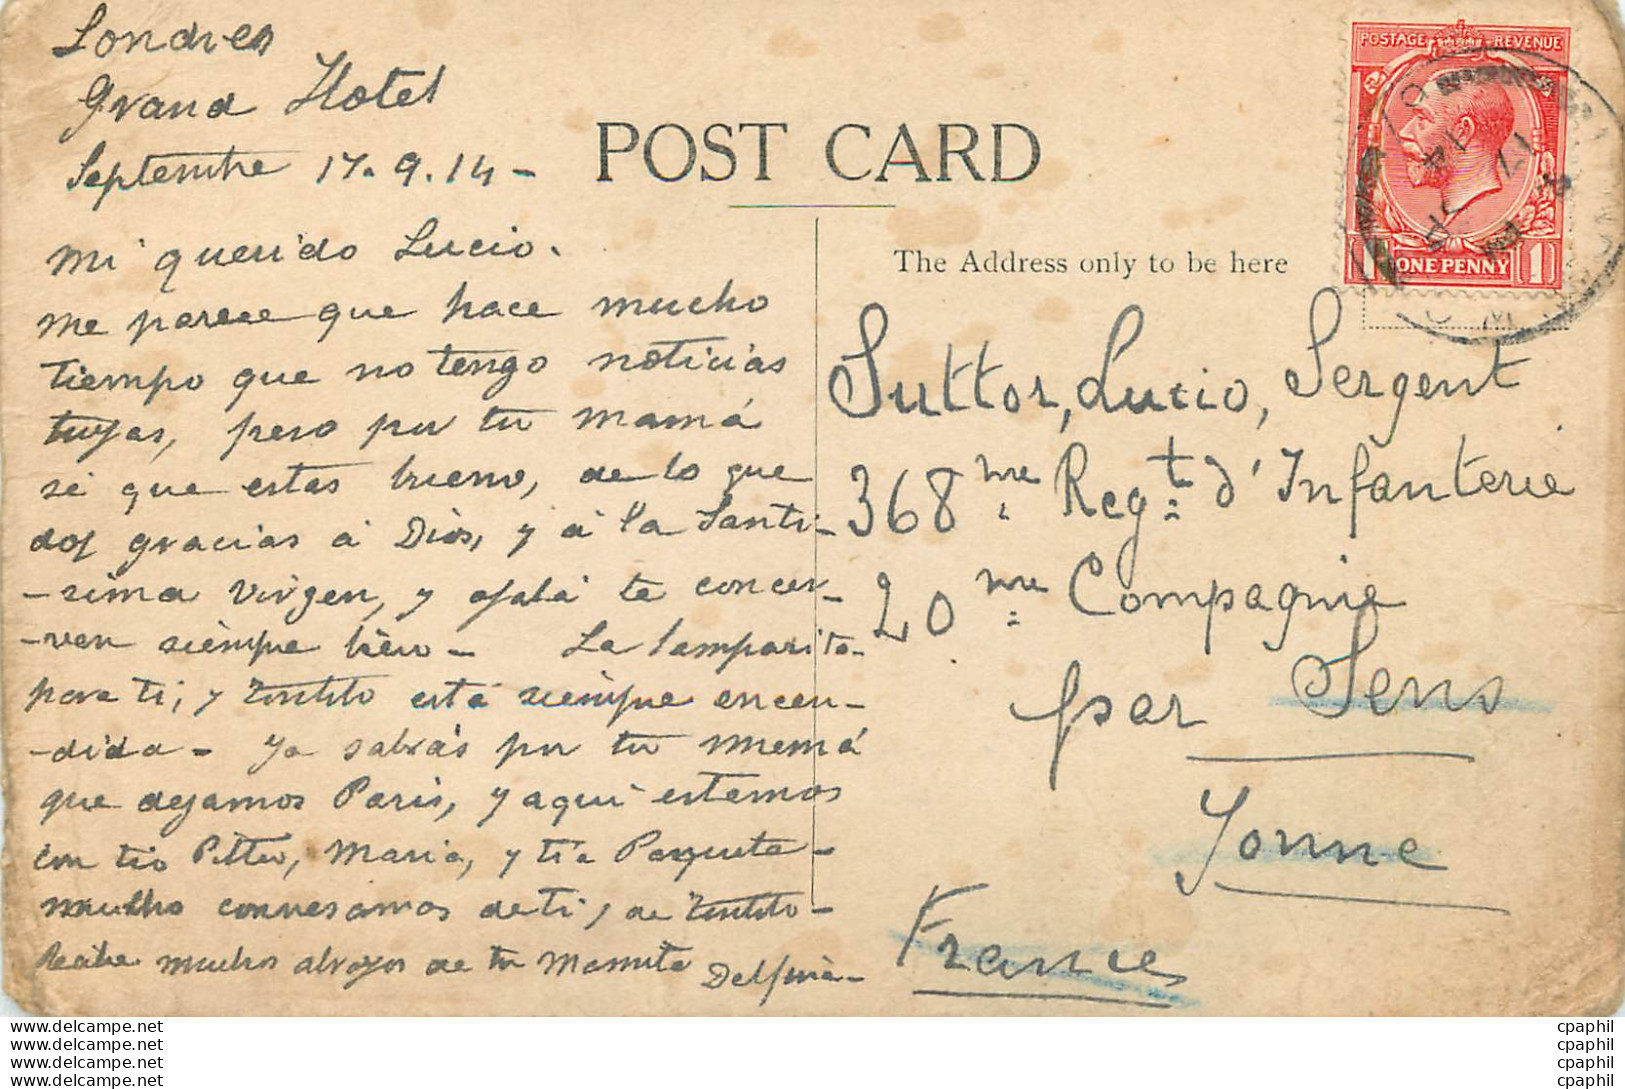 Londres
Grand Hotel
Septembre 17.9.14-
POST CARD
POSTAGE REVENUE
ONE PENNY
1 1
Mi querido Lucio.
me parece que hace mucho
tiempo que no tengo noticias
tuyas, pero por tu mamá
sé que estas bueno, de lo que
doy gracias á Dios, y á la Santi-
-sima Virgen, y ojalá te concer-
-ven siempre bien- La lamparita-
para ti, y está siempre encen-
-dida- Ya sabrás por tu memá
que dejamos Paris, y aqui estamos
con tio Maria, y tia Paquita-
mucho conversamos de ti, de
Recibe muchos abrazos de tu Mamita Delfina-
The Address only to be here
Suttor, Lucio, Sergent
368me Regt d'Infanterie
20me Compagnie
par Sens
Yonne
France
www.delcampe.net
www.delcampe.net
www.delcampe.net
www.delcampe.net
cpaphil
cpaphil
cpaphil
cpaphil